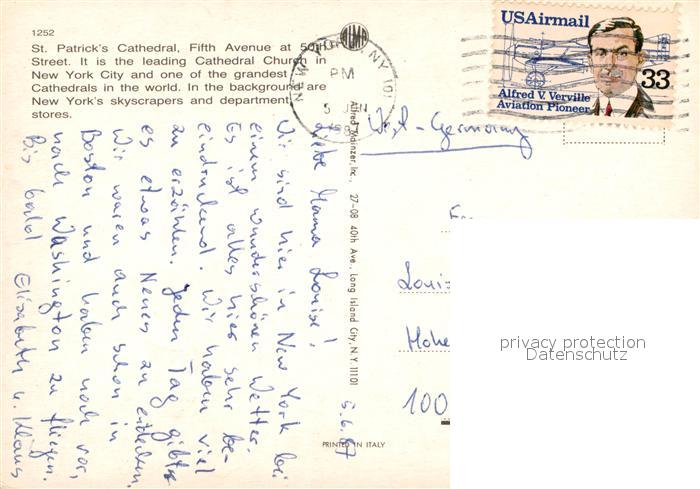 1252
St. Patrick's Cathedral, Fifth Avenue at 50th
Street. It is the leading Cathedral Church in
New York City and one of the grandest
Cathedrals in the world. In the background are
New York's skyscrapers and department
stores.
NEW NY 10
PM
5 JUN
198
USAirmail
33
Alfred V. Verville
Aviation Pioneer
5.6.87
Liebe Mama Louise!
Wir sind hier in New York bei
einem wunderschönen Wetter.
Es ist alles hier sehr be-
eindruckend. Wir haben viel
zu erzählen. Jeden Tag gibt
es etwas Neues zu entdecken.
Wir waren auch schon in
Boston und haben noch vor,
nach Washington zu fliegen.
Bis bald Elisabeth u. Klaus
Alfred Mainzer, Inc. 27-08 40th Ave., Long Island City, N.Y. 11101
PRINTED IN ITALY
W.-Germany
Louis
Hohe
100
privacy protection
Datenschutz